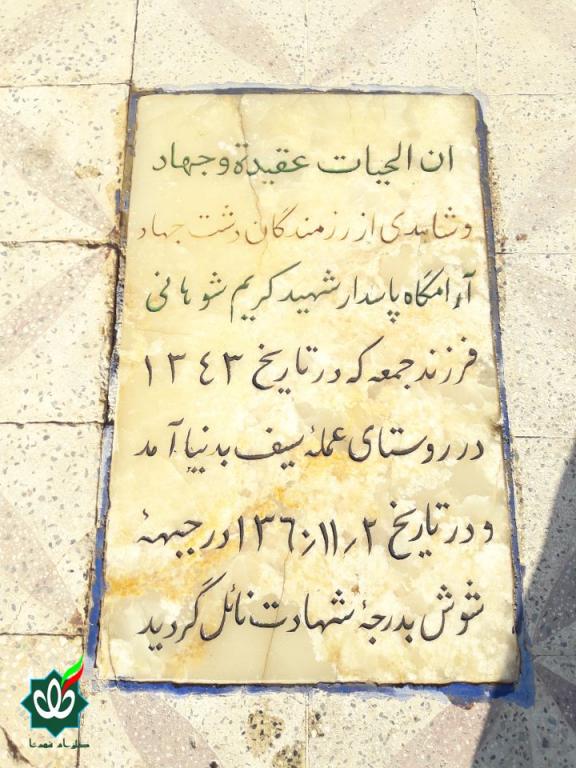 ان الحیات عقیدة و جهاد
و شاهدی از رزمندگان دشت جهاد
آرامگاه پاسدار شهید کریم شوهانی
فرزند جمعه که در تاریخ ۱۳٤۳
در روستای عملهٔ سیف بدنیا آمد
و در تاریخ ۲؍۱۱؍۱۳٦۰ در جبههٔ
شوش بدرجهٔ شهادت نائل گردید